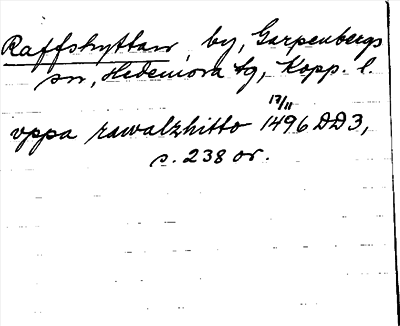 Raffshyttan, by, Garpenbergs
sn, Hedemora tg, Kopp. l.
17/11
vppa rawalzhitto 1496 DD3,
s. 238 or.